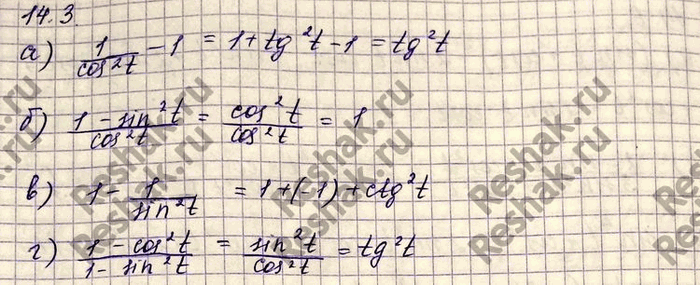 14.3.
а) 1/cos²t - 1 = 1 + tg²t - 1 = tg²t
б) 1 - sin²t/cos²t = cos²t/cos²t = 1
в) 1 - 1/sin²t = 1 + (-1) + ctg²t
г) 1 - cos²t/1 - sin²t = sin²t/cos²t = tg²t
Reshak.ru
Reshak.ru
Reshak.ru
Reshak.ru
Reshak.ru
Reshak.ru